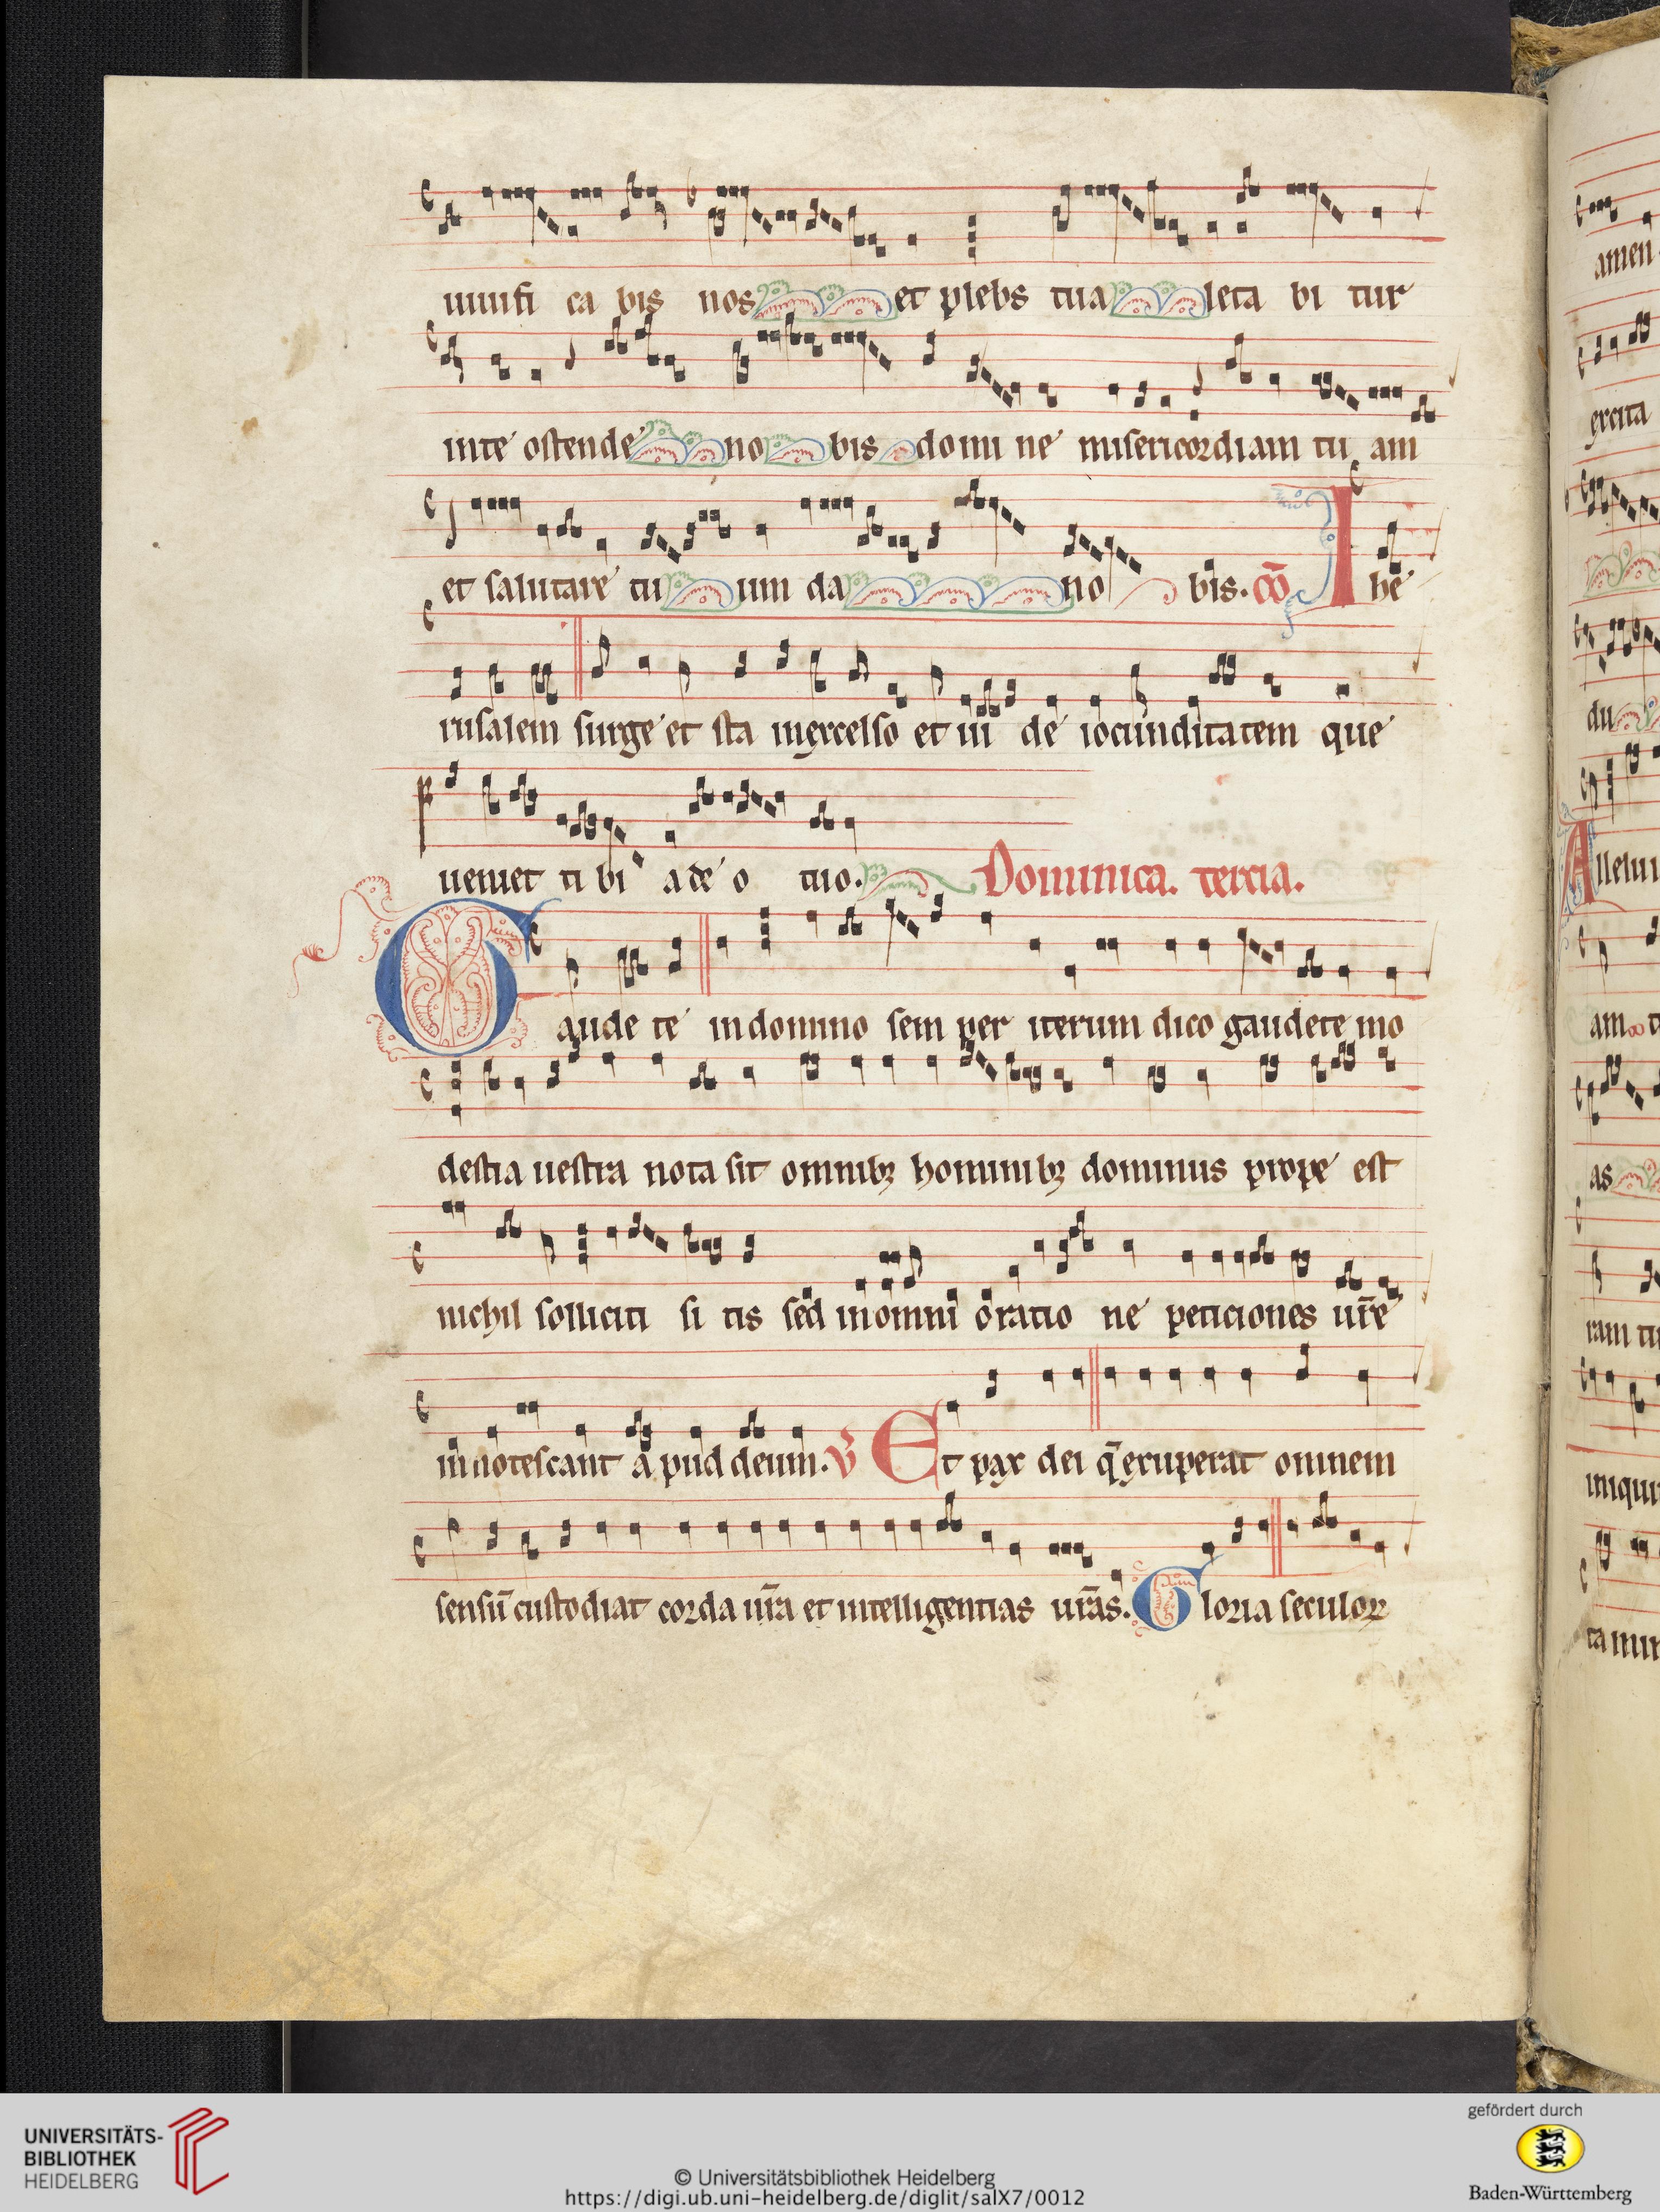 uiuifi ca bis nos et plebs tua leta bi tur
inte ostende no bis domi ne misericordiam tu am
et salutare tu um da no bis. co᷈ I he
rusalem surge et sta inexcelso et ui de iocunditatem que
ueniet ti bi a de o tuo. Dominica. tercia.
Gaude te indomino sem per iterum dico gaudete mo
destia uestra nota sit omnibꝫ hominibꝫ dominus prope est
nichil solliciti si tis sed inomni oratio ne peticiones ur̄e
innotescant a pud deum. V̄ Et pax dei q̄ exuperat omnem
sensū custodiat corda ur̄a et intelligentias ur̄as. Gloria seculoꝝ
amen
exita
du
Allelui
am
as
ram tu
iniqui
UNIVERSITÄTS-
BIBLIOTHEK
HEIDELBERG
© Universitätsbibliothek Heidelberg
https://digi.ub.uni-heidelberg.de/diglit/salX7/0012
gefördert durch
Baden-Württemberg